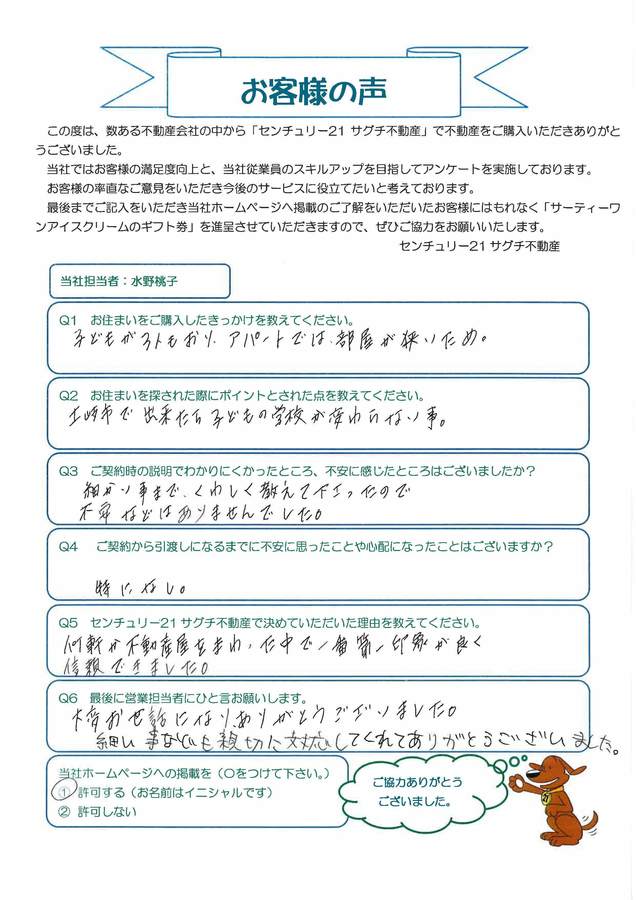 お客様の声
この度は、数ある不動産会社の中から「センチュリー21 サグチ不動産」で不動産をご購入いただきありがと
うございました。
当社ではお客様の満足度向上と、当社従業員のスキルアップを目指してアンケートを実施しております。
お客様の率直なご意見をいただき今後のサービスに役立てたいと考えております。
最後までご記入をいただき当社ホームページへ掲載のご了解をいただいたお客様にはもれなく「サーティーワ
ンアイスクリームのギフト券」を進呈させていただきますので、ぜひご協力をお願いいたします。
センチュリー21 サグチ不動産
当社担当者：水野桃子
Q1 お住まいをご購入したきっかけを教えてください。
子どもが3人もおり、アパートでは、部屋が狭いため。
Q2 お住まいを探された際にポイントとされた点を教えてください。
土岐市で出来たら子どもの学校が変わらない事。
Q3 ご契約時の説明でわかりにくかったところ、不安に感じたところはございましたか？
細かい事まで、くわしく教えて下さったので
不安などはありませんでした。
Q4 ご契約から引渡しになるまでに不安に思ったことや心配になったことはございますか？
特にない。
Q5 センチュリー21 サグチ不動産で決めていただいた理由を教えてください。
何軒か不動産屋をまわった中で一番第一印象が良く
信頼できました。
Q6 最後に営業担当者にひと言お願いします。
大変お世話になり、ありがとうございました。
細い事なども親切に対応してくれてありがとうございました。
当社ホームページへの掲載を（○をつけて下さい。）
① 許可する（お名前はイニシャルです）
② 許可しない
ご協力ありがとう
ございました。
21